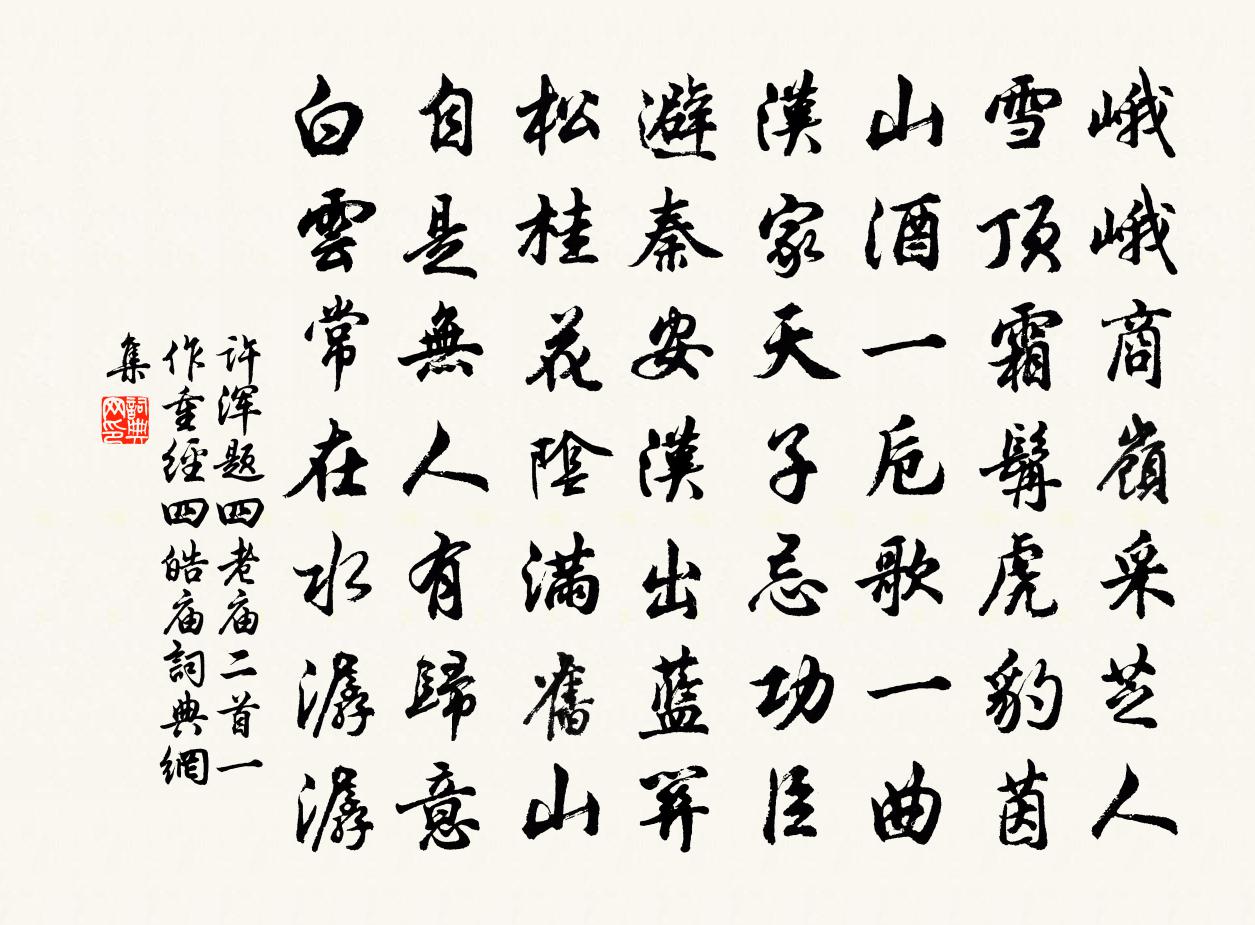 峨峨商嶺采芝人
雪頂霜髯虎豹茵
山酒一卮歌一曲
漢家天子忌功臣
避秦安漢出藍關
松桂花陰滿舊山
自是無人有歸意
白雲常在水潺潺
许浑题四老庙二首一
作重經四皓庙詞典網
集
詞典网印